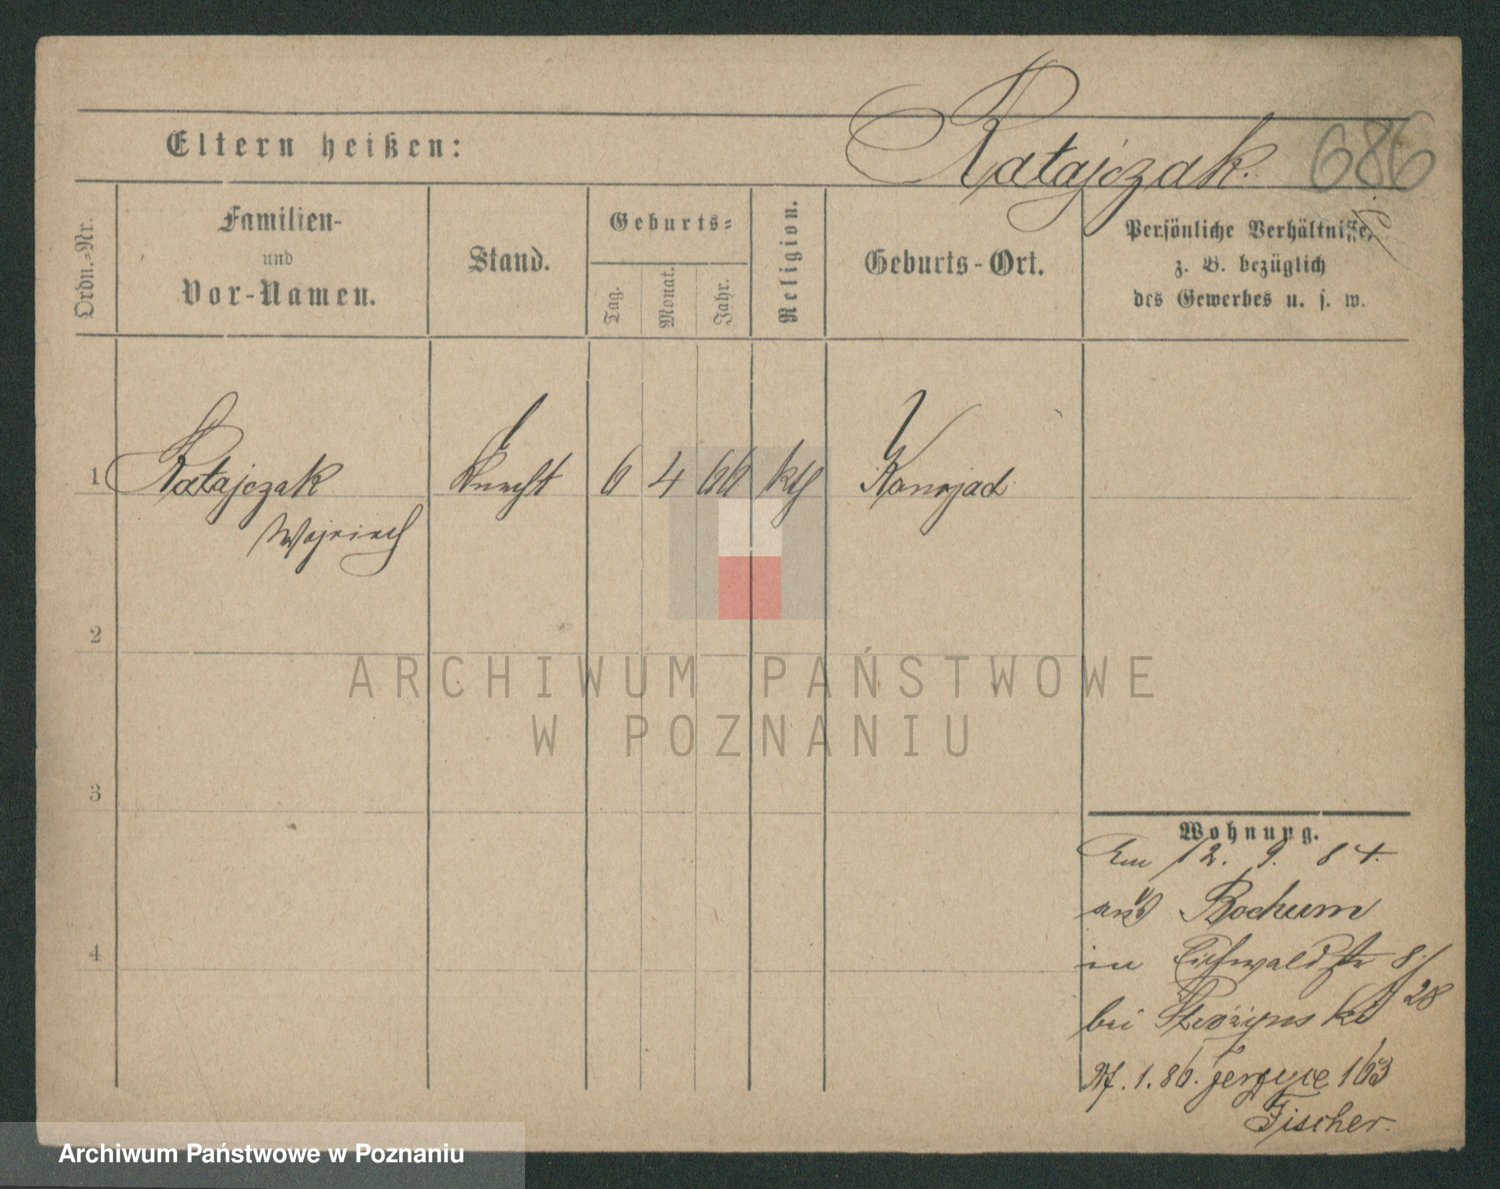 Eltern heißen:
Ratajczak.
686
Ordn.-Nr.
Familien-
und
Vor-Namen.
Stand.
Geburts-
Tag.
Monat.
Jahr.
Religion.
Geburts-Ort.
Persönliche Verhältnisse,
z. B. bezüglich
des Gewerbes u. s. w.
1 Ratajczak Knecht 6 4 66 kth Konojad
Wojciech
2
ARCHIWUM PAŃSTWOWE
W POZNANIU
3
Wohnung.
12. 9. 84.
aus Bochum
in Eichwaldstr 8/
28
bei
1. 86. Jerzyce 163
Fischer.
4
Archiwum Państwowe w Poznaniu